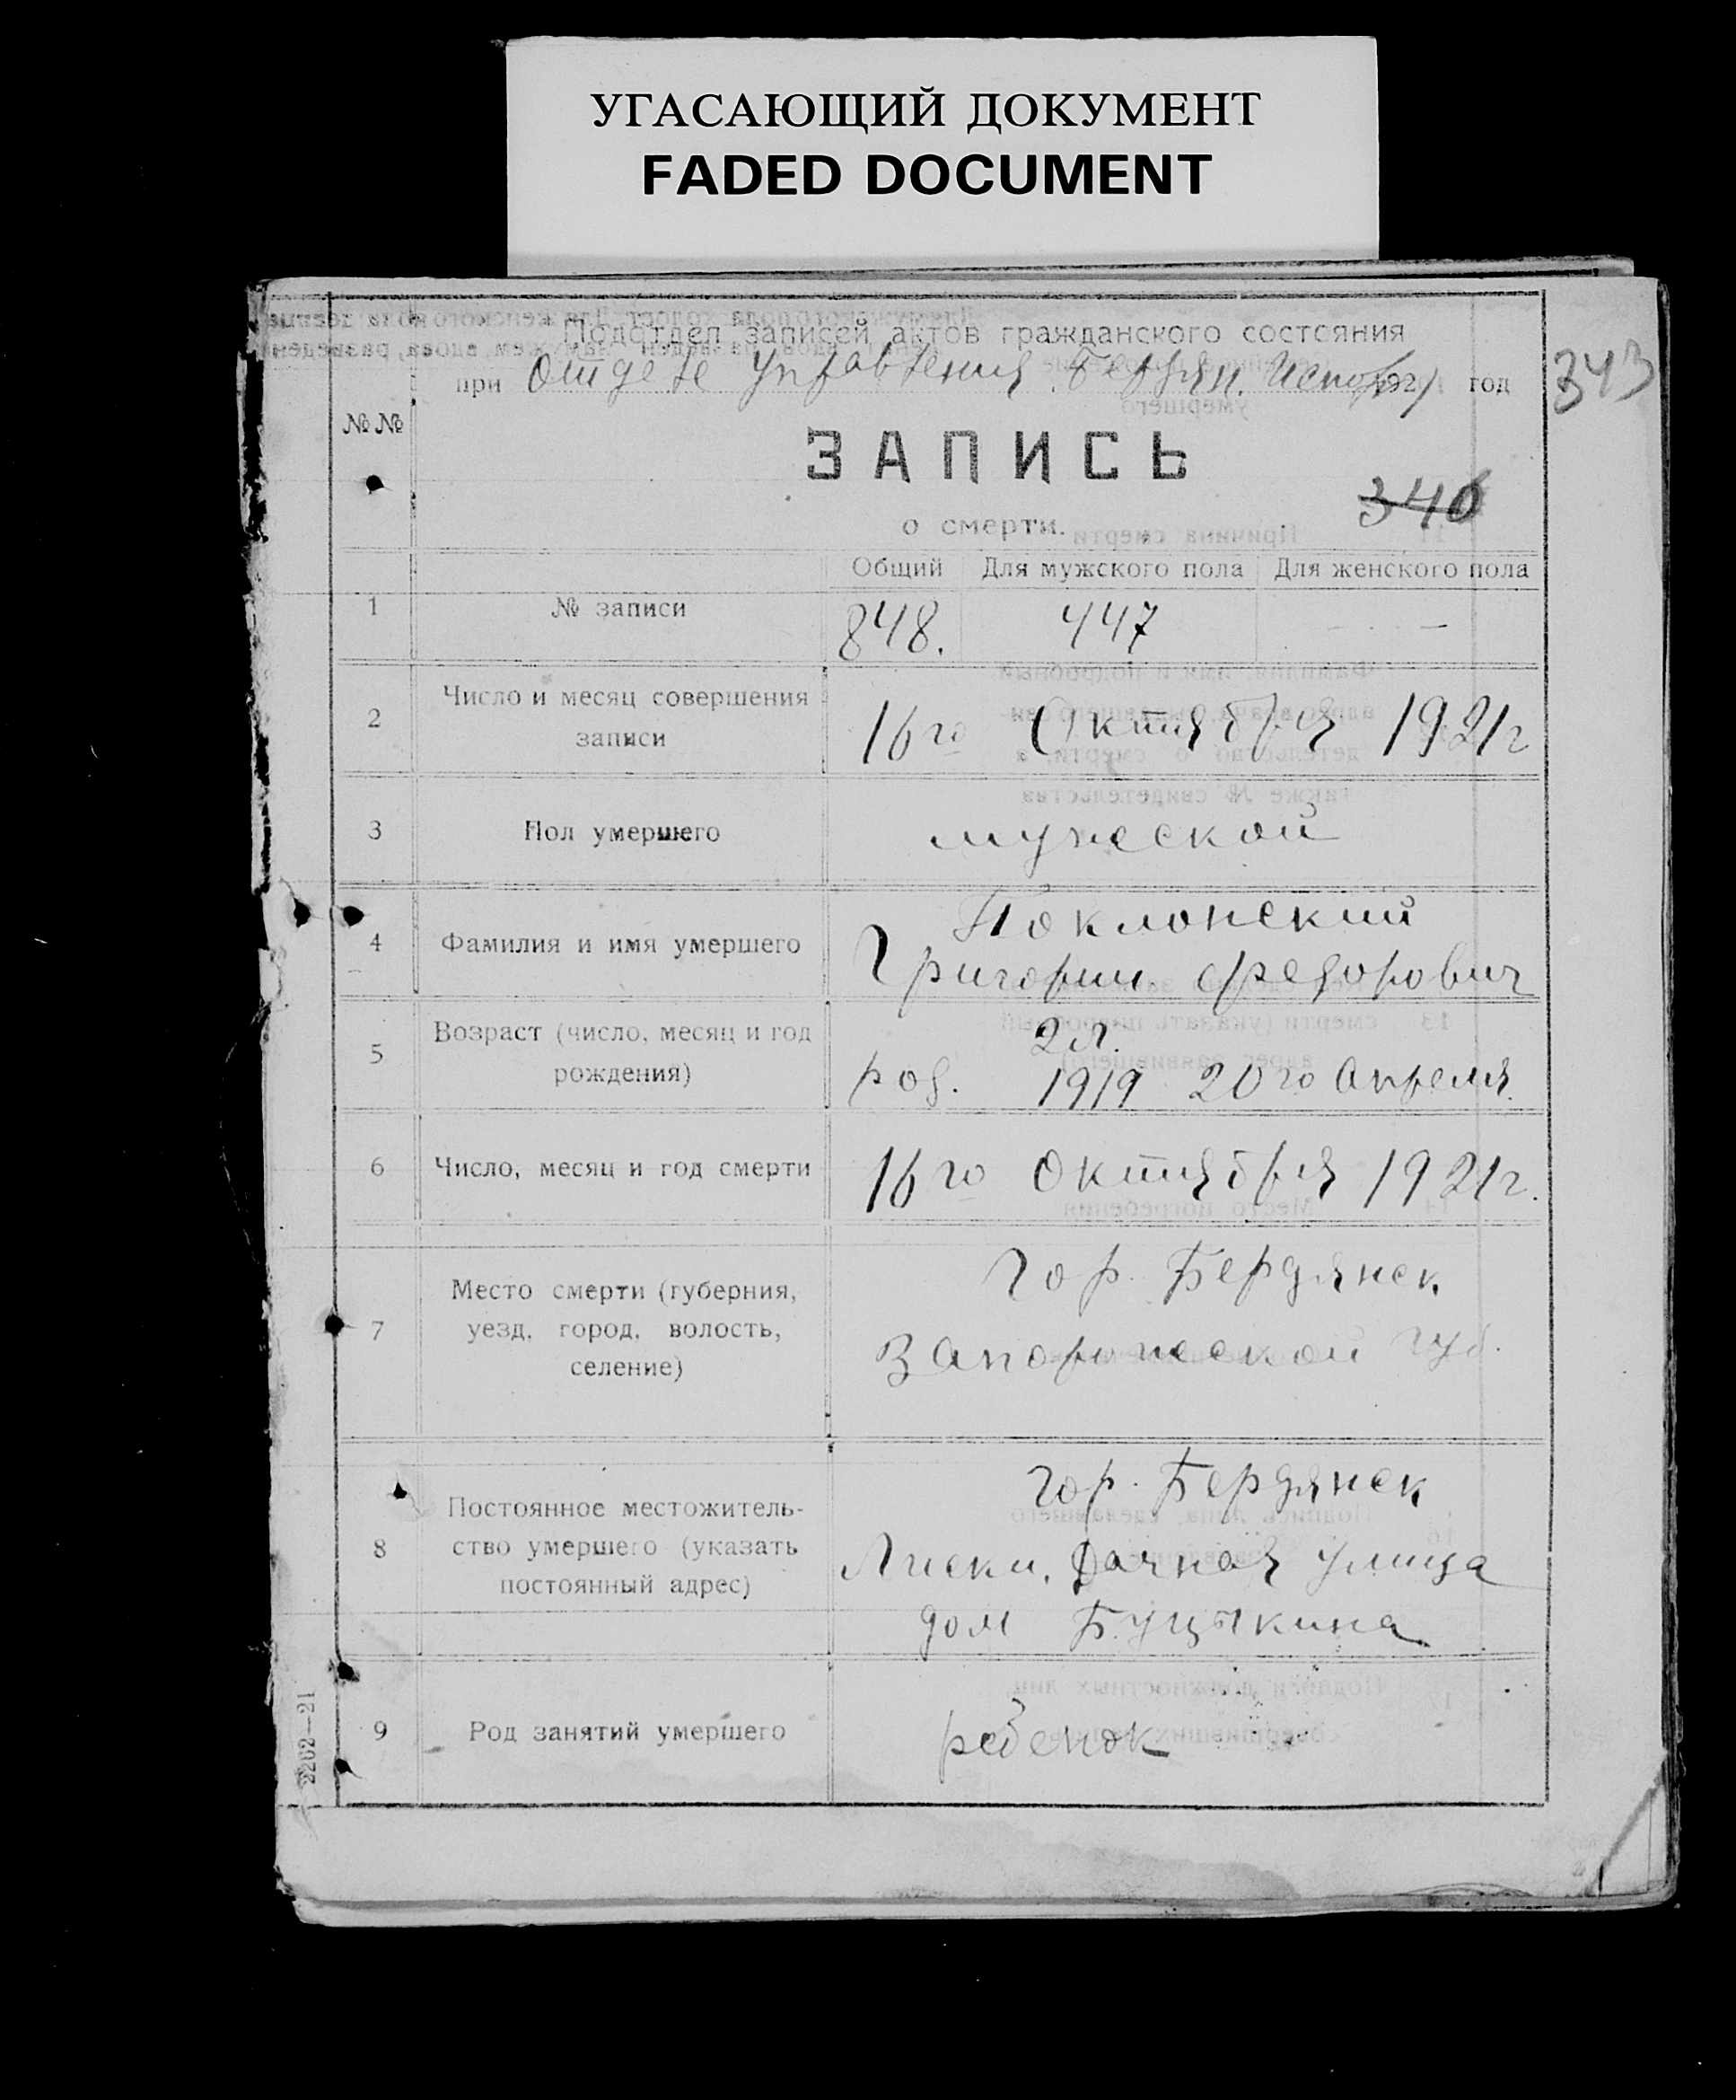 УГАСАЮЩИЙ ДОКУМЕНТ
FADED DOCUMENT
Подотдел записей актов гражданского состояния
при Отделе Управления Бердян. 192 год
343
№№
ЗАПИСЬ
340
о смерти.
Общий Для мужского пола Для женского пола
1 № записи 848. 447 —
2 Число и месяц совершения
записи
16го Октября 1921г
3 Пол умершего мужеской
4 Фамилия и имя умершего
Поклонский
Григорий Федорович
5 Возраст (число, месяц и год
рождения)
2 л.
род. 1919 20го Апреля.
6 Число, месяц и год смерти 16го Октября 1921г.
7 Место смерти (губерния,
уезд, город, волость,
селение)
Гор. Бердянск
Запорожской губ.
8 Постоянное местожитель-
ство умершего (указать
постоянный адрес)
гор. Бердянск
Лиски, Дачная улица
дом Буцыкина
9 Род занятий умершего ребенок
2262—21